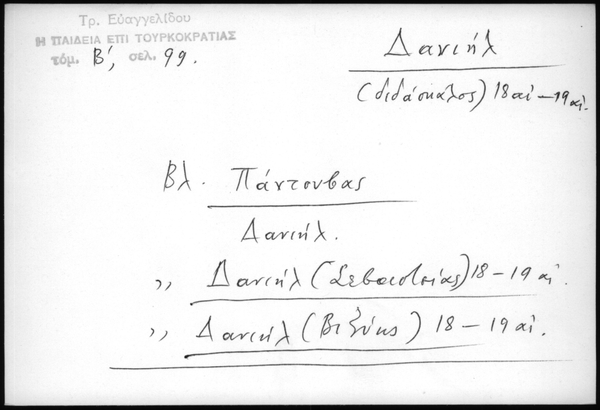 Τρ. Εὐαγγελίδου
Η ΠΑΙΔΕΙΑ ΕΠΙ ΤΟΥΡΚΟΚΡΑΤΙΑΣ
τόμ. Β', σελ. 99.
Δανιήλ
(διδάσκαλος) 18 αἰ – 19 αἰ.
Βλ. Πάντουβας
Δανιήλ.
,, Δανιήλ (Σεβαστείας) 18 – 19 αἰ.
,, Δανιήλ (Βιζύης) 18 – 19 αἰ.